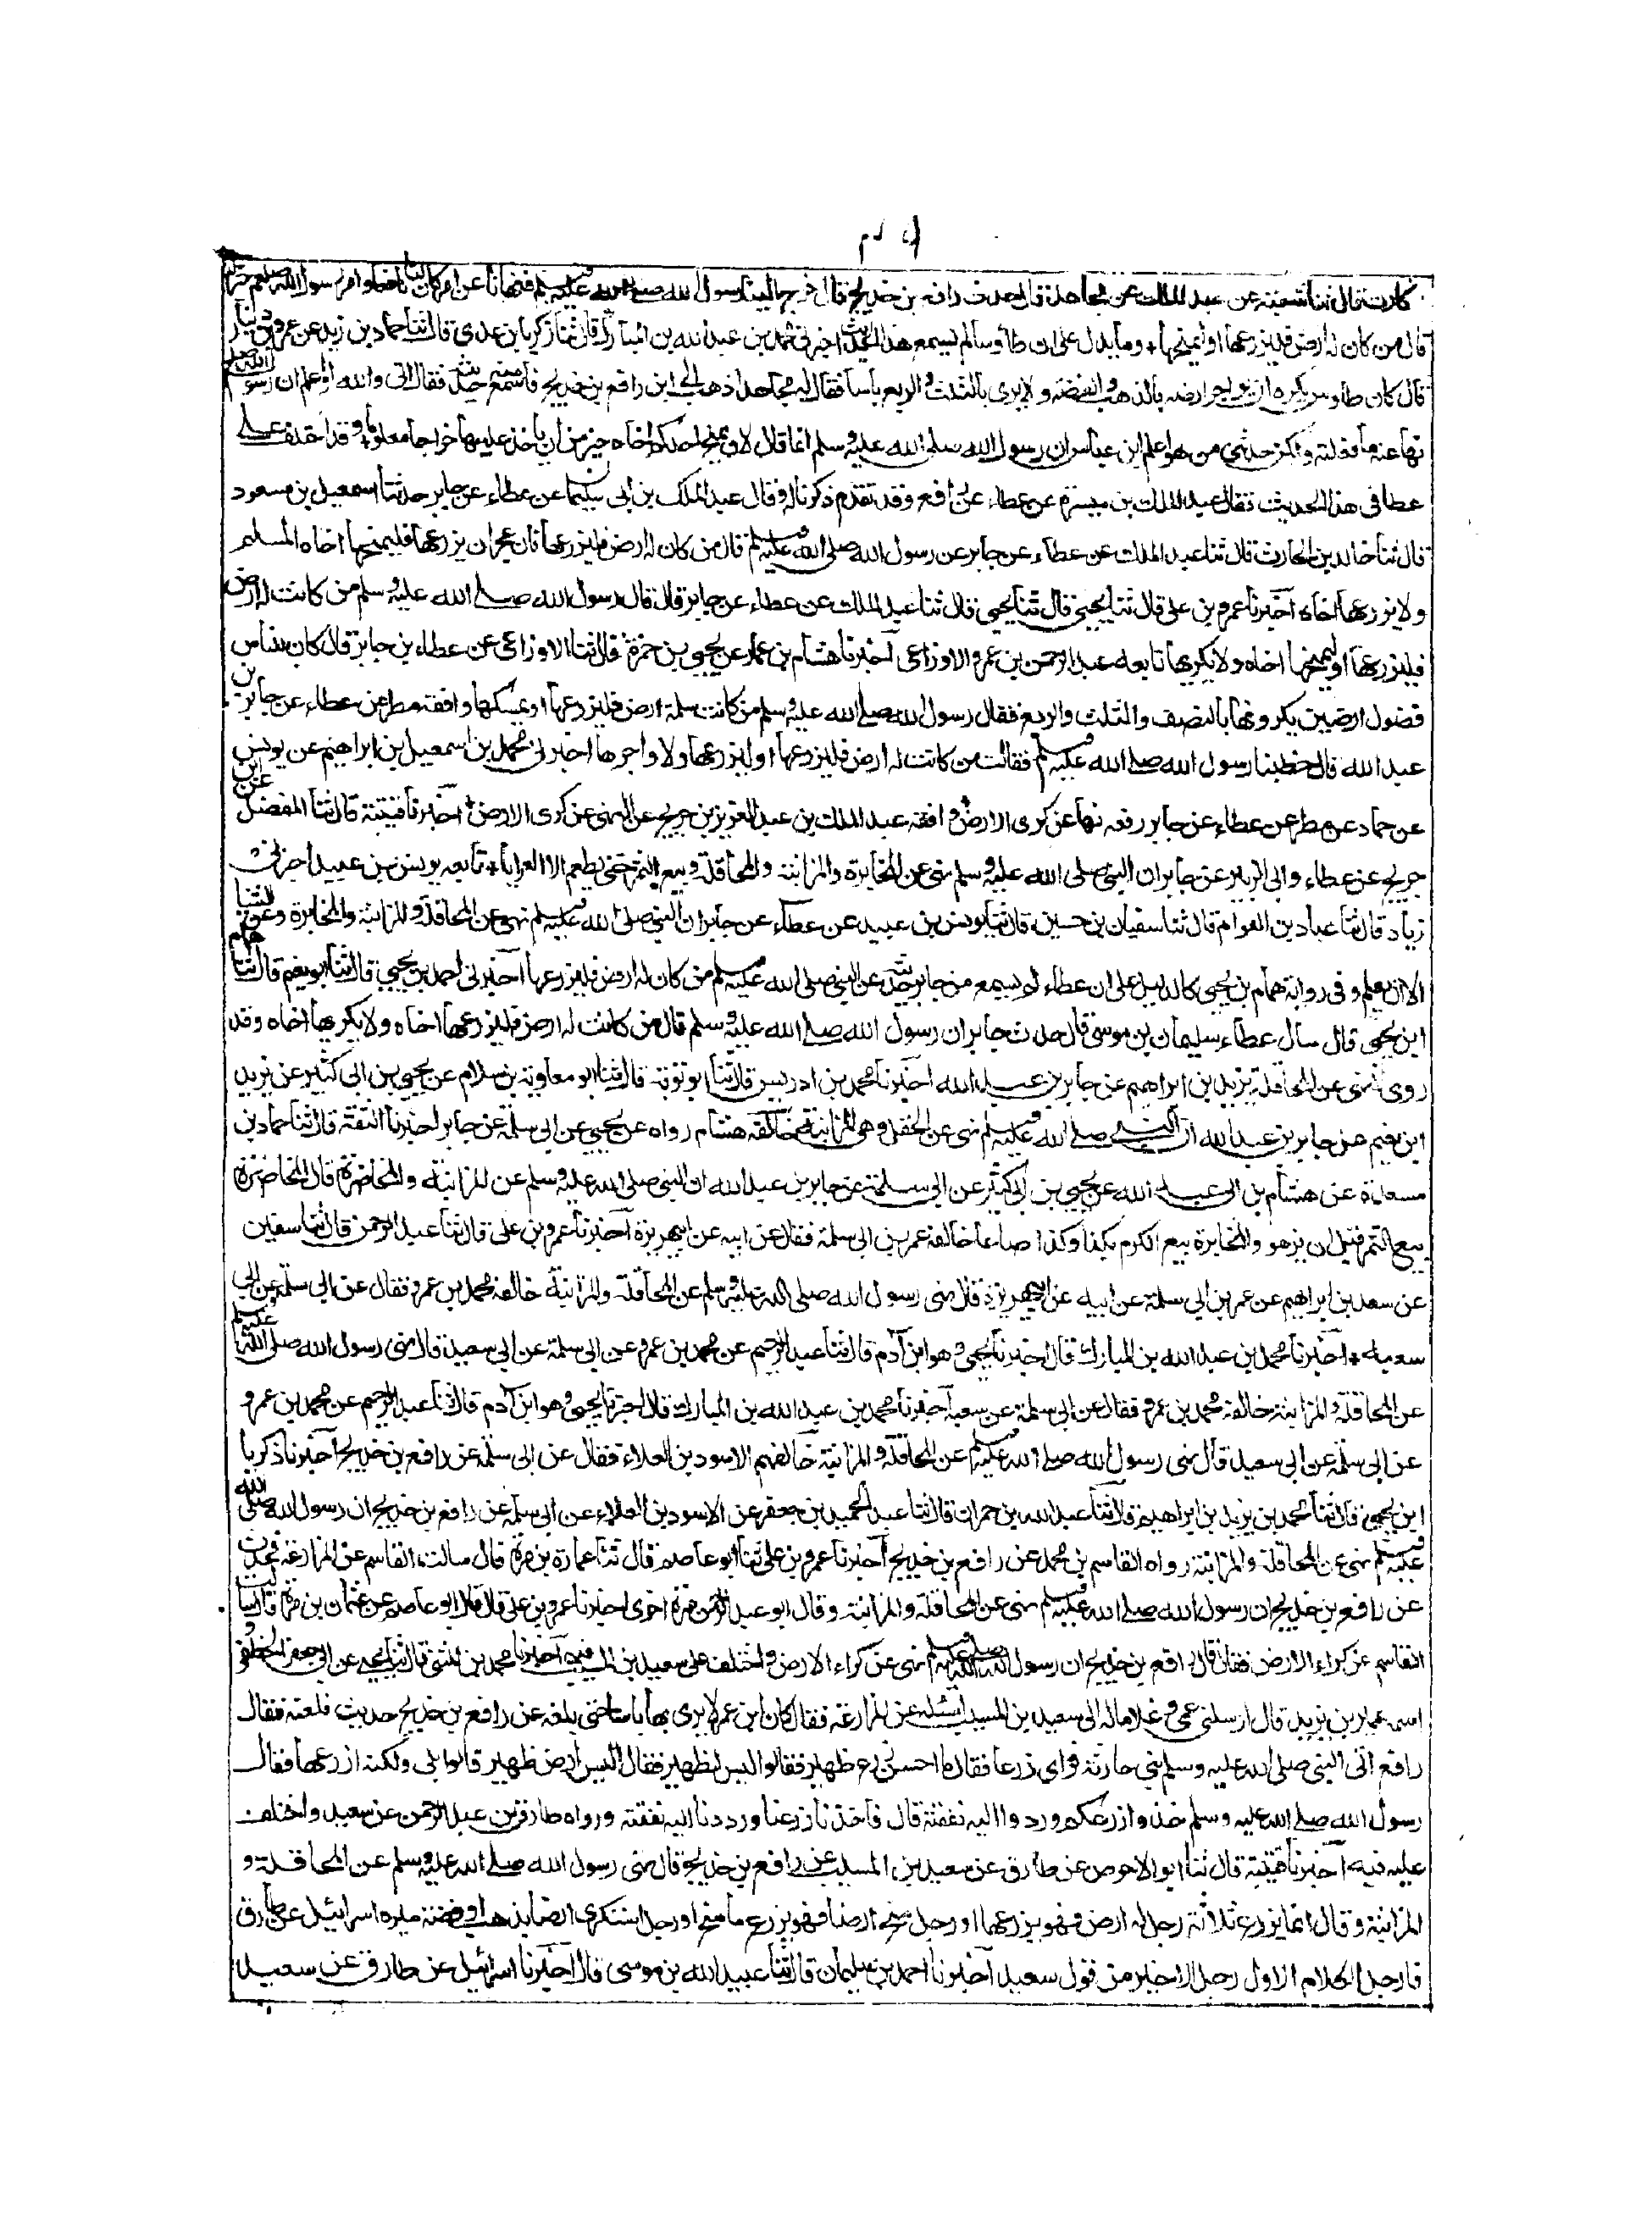 قال ثنا شعبة عن عبد الملك عن مجاهد قال حدث رافع بن خديج قال خرج الينا رسول الله صلى الله عليه وسلم فنهانا عن امر كان لنا نافعا وامر رسول الله صلعم خير لنا
قال من كان له ارض فليزرعها او ليمنحها ومما يدل على ان طاوسا لم يسمع هذا الحديث اخبرني محمد بن عبد الله بن المبارك قال ثنا زكريا بن عدي قال ثنا حماد بن زيد عن عمرو بن دينار
قال كان طاوس يكره ان يواجر ارضه بالذهب والفضة ولا يرى بالثلث والربع باسا فقال له مجاهد اذهب الى ابن رافع بن خديج فاسمع منه حديثه فقال اني والله لو اعلم ان رسول الله صلى
نها عنه ما فعلته ولكن حدثني من هو اعلم ابن عباس ان رسول الله صلى الله عليه وسلم انما قال لان يمنح احدكم اخاه خير من ان ياخذ عليها خراجا معلوما وقد اختلف على
عطا في هذا الحديث فقال عبد الملك بن ميسرة عن عطاء عن رافع وقد تقدم ذكرنا له وقال عبد الملك بن ابي سليما عن عطاء عن جابر حدثنا اسمعيل بن مسعود
قال ثنا خالد بن الحارث قال ثنا عبد الملك عن عطاء عن جابر عن رسول الله صلى الله عليه وسلم قال من كان له ارض فليزرعها فان عجز ان يزرعها فليمنحها اخاه المسلم
ولا يزرعها اخاه اخبرنا عمرو بن على قال ثنا يحيى قال ثنا يحيى قال ثنا عبد الملك عن عطاء عن جابر قال قال رسول الله صلى الله عليه وسلم من كانت له ارض
فليزرعها او ليمنحها اخاه ولا يكريها تابعه عبد الرحمن بن عمرو الاوزاعى اخبرنا هشام بن عمار عن يحيى بن حمزة قال ثنا الاوزاعى عن عطاء بن جابر قال كان لناس
فضول ارضيين يكرونها بالنصف والثلث والربع فقال رسول الله صلى الله عليه وسلم من كانت له ارض فليزرعها او يمسكها وافقه مطر عن عطاء عن جابر بن
عبد الله قال خطبنا رسول الله صلى الله عليه وسلم فقال من كانت له ارض فليزرعها او ليزرعها ولا واجرها اخبرني محمد بن اسمعيل بن ابراهيم عن يونس
عن حماد عن مطر عن عطاء عن جابر رفعه نها عن كرى الارض وافقه عبد الملك بن عبد العزيز بن جريج عن النهى عن كرى الارض اخبرنا قتيبة قال ثنا المفضل عن ابن
جريج عن عطاء وابي الزبير عن جابر ان النبي صلى الله عليه وسلم نهى عن المخابرة والمزابنة والمحاقلة وبيع الثمر حتى يطعم الا العرايا تابعه يونس بن عبيد اخبرني
زياد قال ثنا عباد بن العوام قال ثنا سفيان بن حسين قال ثنا يونس بن عبيد عن عطاء عن جابر ان النبي صلى الله عليه وسلم نهى عن المحاقلة والمزابنة والمخابرة وعن الثنيا
الا ان يعلم وفى رواية همام بن يحيى كالدليل على ان عطاء لم يسمع من جابر حديثه عن النبي صلى الله عليه وسلم من كان له ارض فليزرعها اخبرني احمد بن يحيى قال ثنا ابو نعيم قال ثنا همام
ابن يحيى قال سأل عطاء سليمان بن موسى قال حدث جابر ان رسول الله صلى الله عليه وسلم قال من كانت له ارض فليزرعها اخاه ولا يكريها اخاه وقد
روى النهى عن المحاقلة يزيد بن ابراهيم عن جابر بن عبد الله اخبرنا محمد بن ادريس قال ثنا ابو توبة قال ثنا ابو معاوية بن سلام عن يحيى بن ابى كثير عن يزيد
ابن نعيم عن جابر بن عبد الله ان النبى صلى الله عليه وسلم نهى عن الحقل وهى المزابنة خالفه هشام رواه عن يحيى عن ابى سلمة عن جابر اخبرنا الثقة قال ثنا حماد بن
مسعدة عن هشام بن ابى عبد الله عن يحيى بن ابى كثير عن ابى سلمة عن جابر بن عبد الله ان النبى صلى الله عليه وسلم عن المزابنة والمخاضرة قال المخاضرة
بيع الثمر قبل ان يزهو والمخابرة بيع الكرم بكذا وكذا صاعا خالفه عمر بن ابى سلمة فقال عن ابيه عن ابى هريرة اخبرنا عمرو بن على قال ثنا عبد الرحمن قال ثنا سفين
عن سعد بن ابراهيم عن عمر بن ابى سلمة عن ابيه عن ابى هريرة قال نهى رسول الله صلى الله عليه وسلم عن المحاقلة والمزابنة خالفه محمد بن عمرو فقال عن ابى سلمة عن ابى
سعيد اخبرنا محمد بن عبد الله بن المبارك قال اخبرنا يحيى وهو ابن آدم قال ثنا عبد الرحيم عن محمد بن عمرو عن ابى سلمة عن ابى سعيد قال نهى رسول الله صلى الله عليه وسلم
عن المحاقلة والمزابنة خالفه محمد بن عمرو فقال عن ابى سلمة عن سعيد اخبرنا محمد بن عبد الله بن المبارك قال اخبرنا يحيى وهو ابن آدم قال ثنا عبد الرحيم عن محمد بن عمرو
عن ابى سلمة عن ابى سعيد قال نهى رسول الله صلى الله عليه وسلم عن المحاقلة والمزابنة خالفهم الاسود بن العلاء فقال عن ابى سلمة عن رافع بن خديج اخبرنا زكريا
ابن يحيى قال ثنا محمد بن يزيد بن ابراهيم قال ثنا عبد الله بن حمران قال ثنا عبد الحميد بن جعفر عن الاسود بن العلاء عن ابى سلمة عن رافع بن خديج ان رسول الله صلى الله
عليه وسلم نهى عن المحاقلة والمزابنة رواه القاسم بن محمد عن رافع بن خديج اخبرنا عمرو بن على ثنا ابو عاصم قال ثنا عمارة بن مرة قال سالت القاسم عن المزارعة فحدث
عن رافع بن خديج ان رسول الله صلى الله عليه وسلم نهى عن المحاقلة والمزابنة وقال ابو عبد الرحمن مرة اخرى اخبرنا عمرو بن على قال قال ابو عاصم عن عثمان بن مرة قال سالت
القاسم عن كراء الارض فقال قال رافع بن خديج ان رسول الله صلى الله عليه وسلم نهى عن كراء الارض واختلف على سعيد بن المسيب فيه اخبرنا محمد بن المثنى قال ثنا يحيى عن ابى جعفر الخطمى و
اسمه عمير بن يزيد قال ارسلنى عمى وغلاما له الى سعيد بن المسيب اسئله عن المزارعة فقال كان ابن عمر لا يرى بها باسا حتى بلغه عن رافع بن خديج حديث فلعنه فقال
رافع اتى النبى صلى الله عليه وسلم بنى حارثة فراى زرعا فقال ما احسن زرع ظهير فقالوا ليس لظهير فقال اليس ارض ظهير قالوا بلى ولكنه ازرعها فقال
رسول الله صلى الله عليه وسلم خذوا زرعكم وردوا اليه نفقته قال فاخذنا زرعنا ورددنا اليه نفقته ورواه طارق بن عبد الرحمن عن سعيد واختلف
عليه فيه اخبرنا قتيبة قال ثنا ابو الاحوص عن طارق عن سعيد بن المسيب عن رافع بن خديج قال نهى رسول الله صلى الله عليه وسلم عن المحاقلة و
المزابنة وقال انما يزرع ثلاثة رجل له ارض فهو يزرعها او رجل منح ارضا فهو يزرع ما منح او رجل استكرى ارضا بذهب او فضة ميزه اسرائيل عن طارق
فارجل الكلام الاول رجل الاخير من قول سعيد اخبرنا احمد بن سليمان قال ثنا عبيد الله بن موسى قال اخبرنا اسرائيل عن طارق عن سعيد